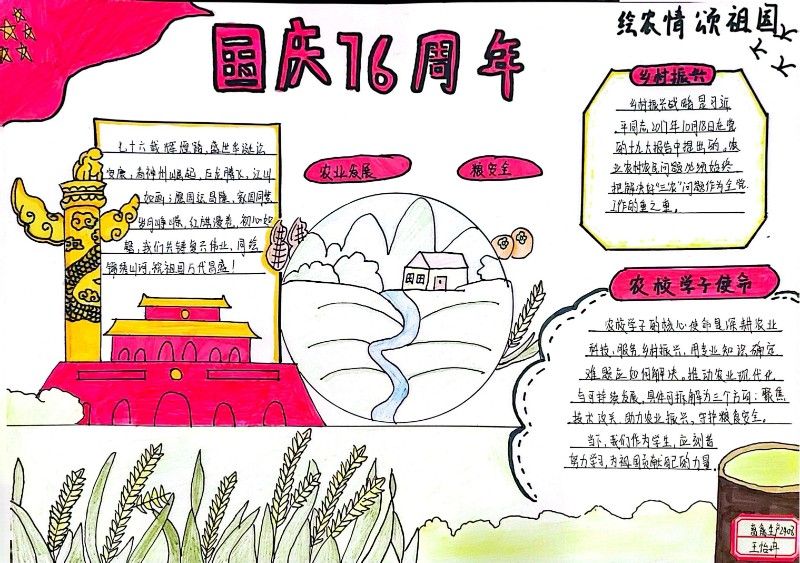 国庆76周年
绘农情 颂祖国
七十六载辉煌路，盛世华诞谱
安康，看神州崛起，巨龙腾飞，江山
如画；愿国运昌隆，家国同梦
岁月峥嵘，红旗漫卷，初心如
磐，我们共铸复兴伟业，同绘
锦绣山河，祝祖国万代昌盛！
农业发展
粮安全
乡村振兴
乡村振兴战略是习近
平同志2017年10月18日在党
的十九大报告中提出的。农
业农村农民问题必须始终
把解决好"三农"问题作为全党
工作的重之重。
农校学子使命
农校学子的核心使命是深耕农业
科技，服务乡村振兴，用专业知识
难题 如何解决。推动农业现代化
与可持续发展，具体可拆解为三个方面：聚焦
技术攻关、助力农业振兴、守护粮食安全。
当下，我们作为学生，应刻苦
努力学习，为祖国贡献自己的力量。
畜禽生产2403
王怡冉